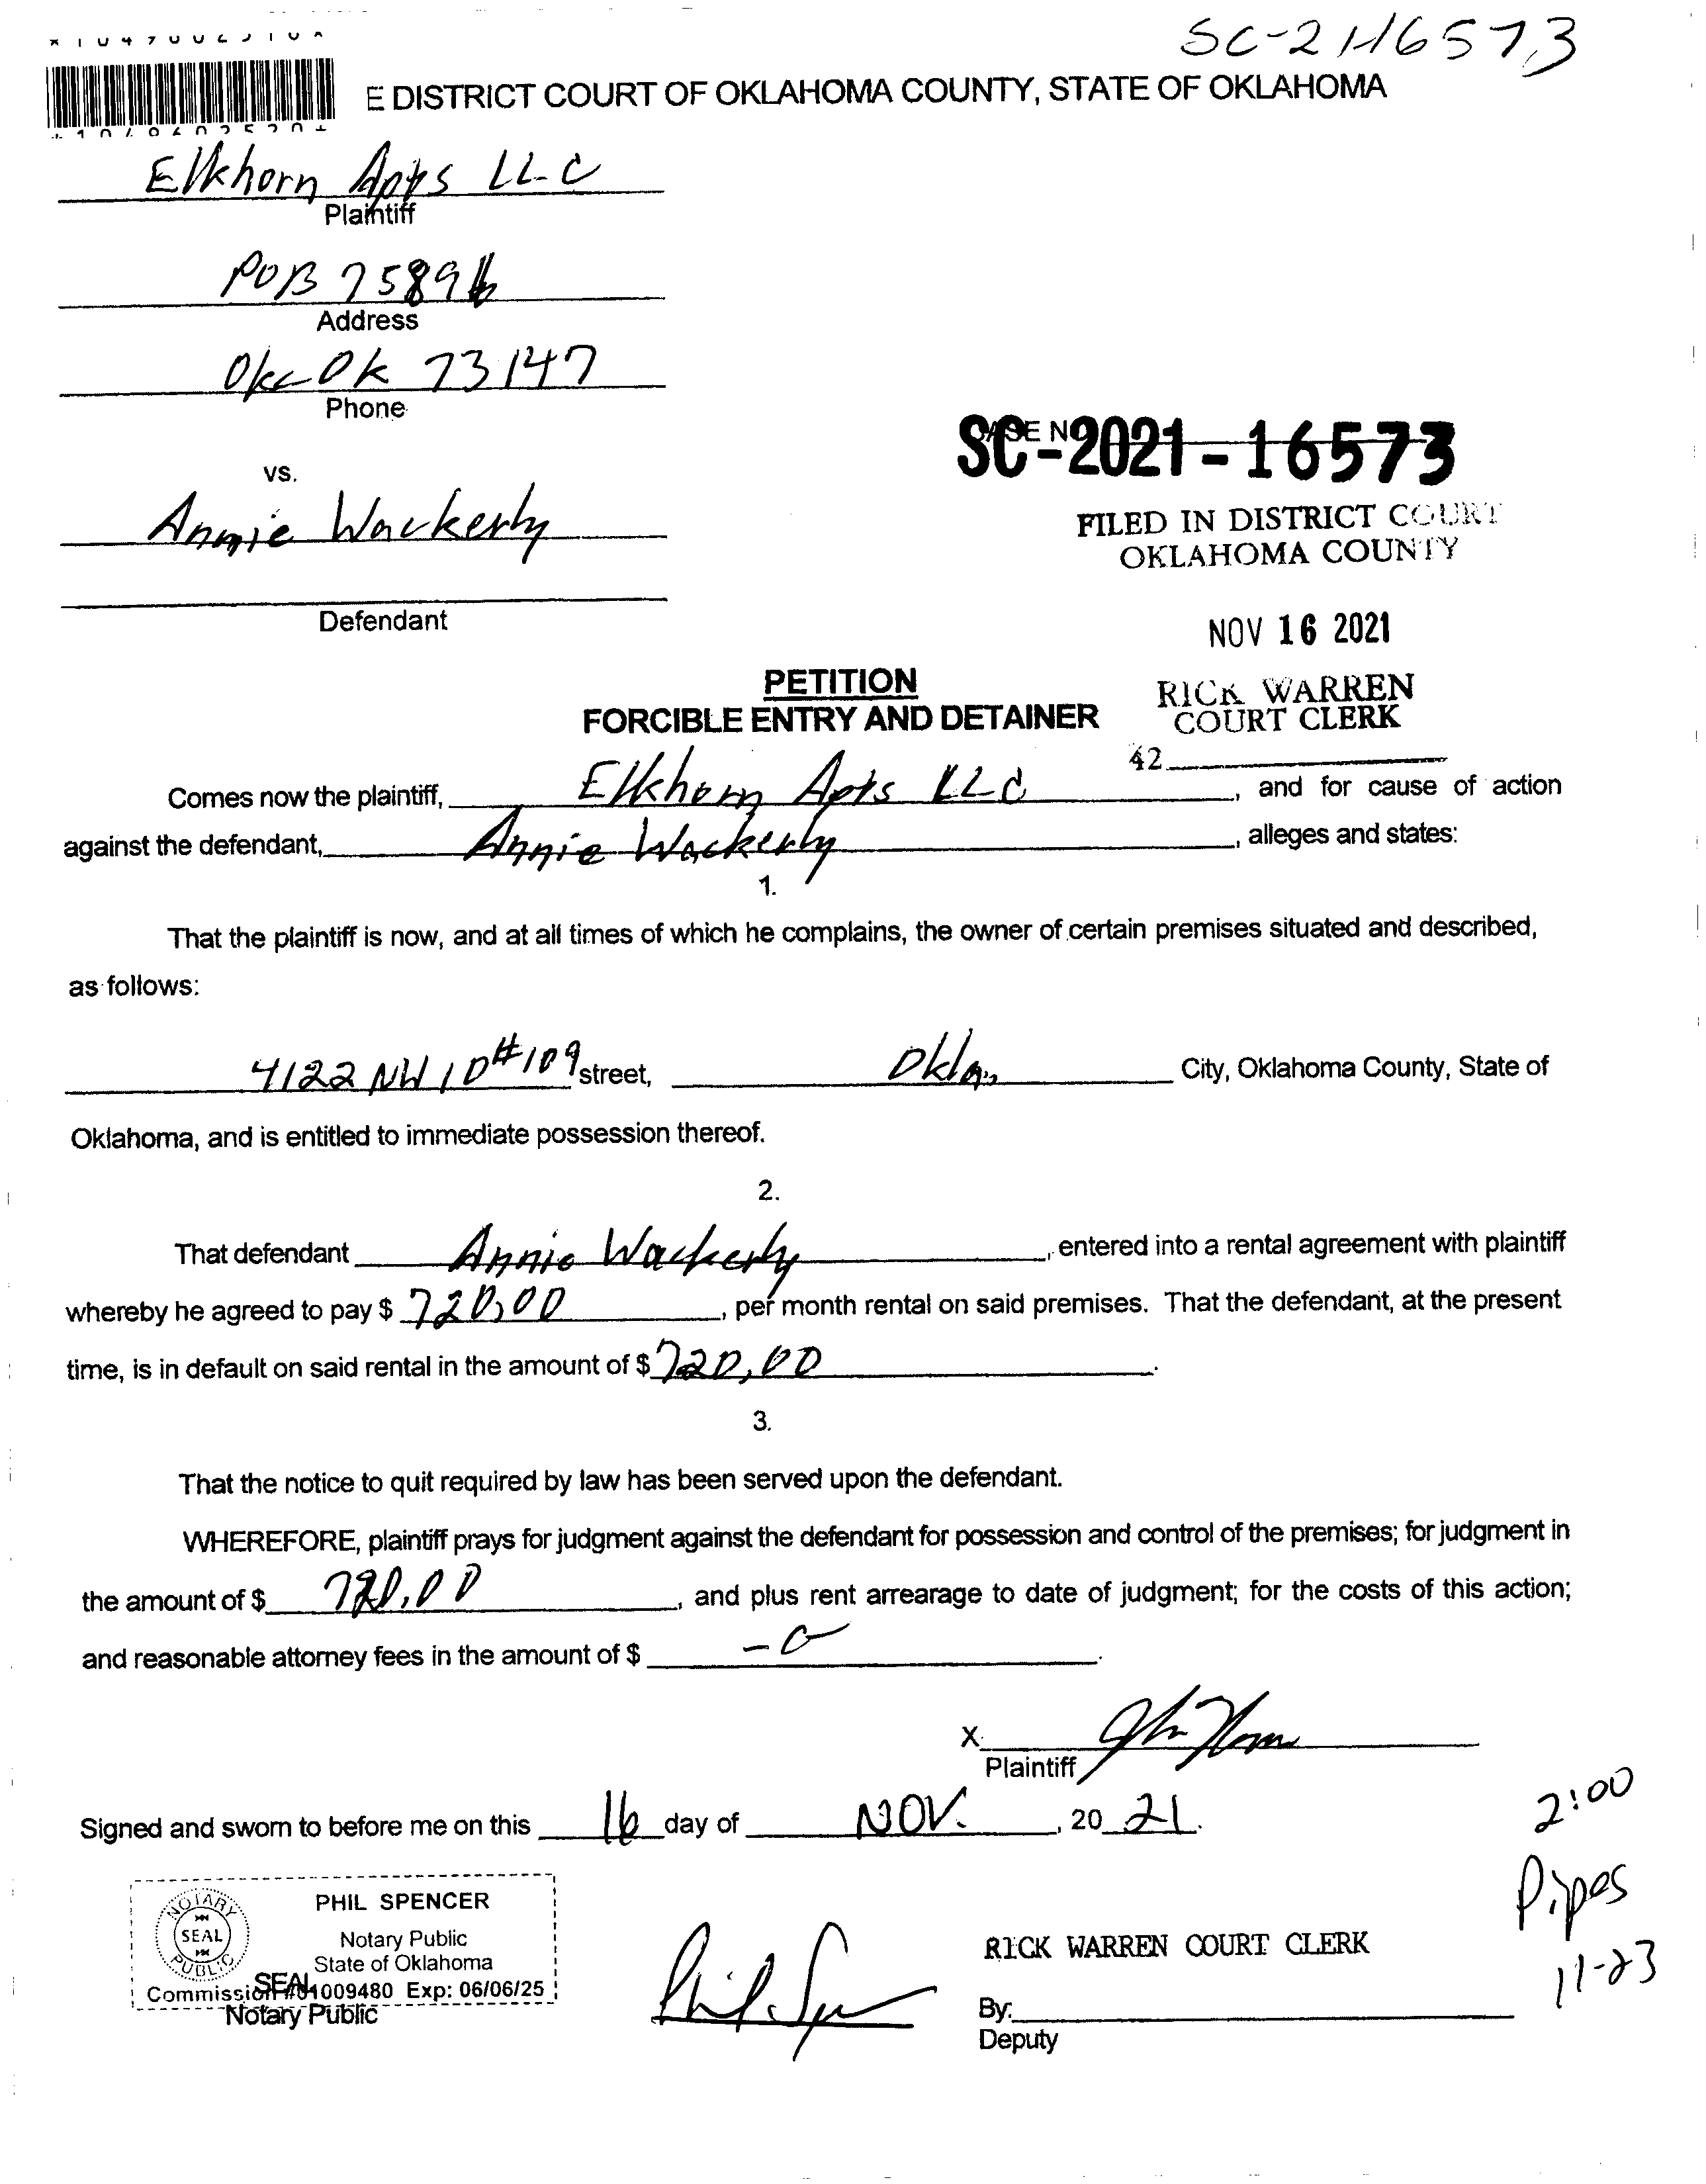 SC-21-16573
E DISTRICT COURT OF OKLAHOMA COUNTY, STATE OF OKLAHOMA
Elkhorn Apts LLC
Plaintiff
POB 75896
Address
Okc Ok 73147
Phone
CASE NO
SC-2021-16573
vs.
FILED IN DISTRICT COURT
OKLAHOMA COUNTY
Annie Wackerly
Defendant
NOV 16 2021
PETITION
RICK WARREN
FORCIBLE ENTRY AND DETAINER
COURT CLERK
42
Comes now the plaintiff, Elkhorn Apts LLC, and for cause of action
against the defendant, Annie Wackerly, alleges and states:
1.
That the plaintiff is now, and at all times of which he complains, the owner of certain premises situated and described,
as follows:
4122 NW 10 #109 street, Okla, City, Oklahoma County, State of
Oklahoma, and is entitled to immediate possession thereof.
2.
That defendant Annie Wackerly, entered into a rental agreement with plaintiff
whereby he agreed to pay $ 720.00, per month rental on said premises. That the defendant, at the present
time, is in default on said rental in the amount of $ 720.00.
3.
That the notice to quit required by law has been served upon the defendant.
WHEREFORE, plaintiff prays for judgment against the defendant for possession and control of the premises; for judgment in
the amount of $ 720.00, and plus rent arrearage to date of judgment; for the costs of this action;
and reasonable attorney fees in the amount of $ -0.
X
Plaintiff
Signed and sworn to before me on this 16 day of NOV., 20 21.
2:00
Pipes
11-23
NOTARY PUBLIC SEAL
PHIL SPENCER
Notary Public
State of Oklahoma
Commission #01009480 Exp: 06/06/25
SEAL
Notary Public
Phil Spencer
RICK WARREN COURT CLERK
By:
Deputy